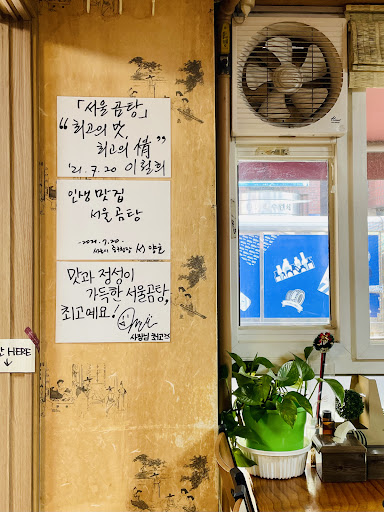 「서울곰탕」
“최고의 맛,
최고의 情”
'21.7.20 이철희
인생 맛집
서울곰탕
-2021.7.20-
서양호
맛과 정성이
가득한 서울곰탕,
최고예요!
사장님 최고
HERE